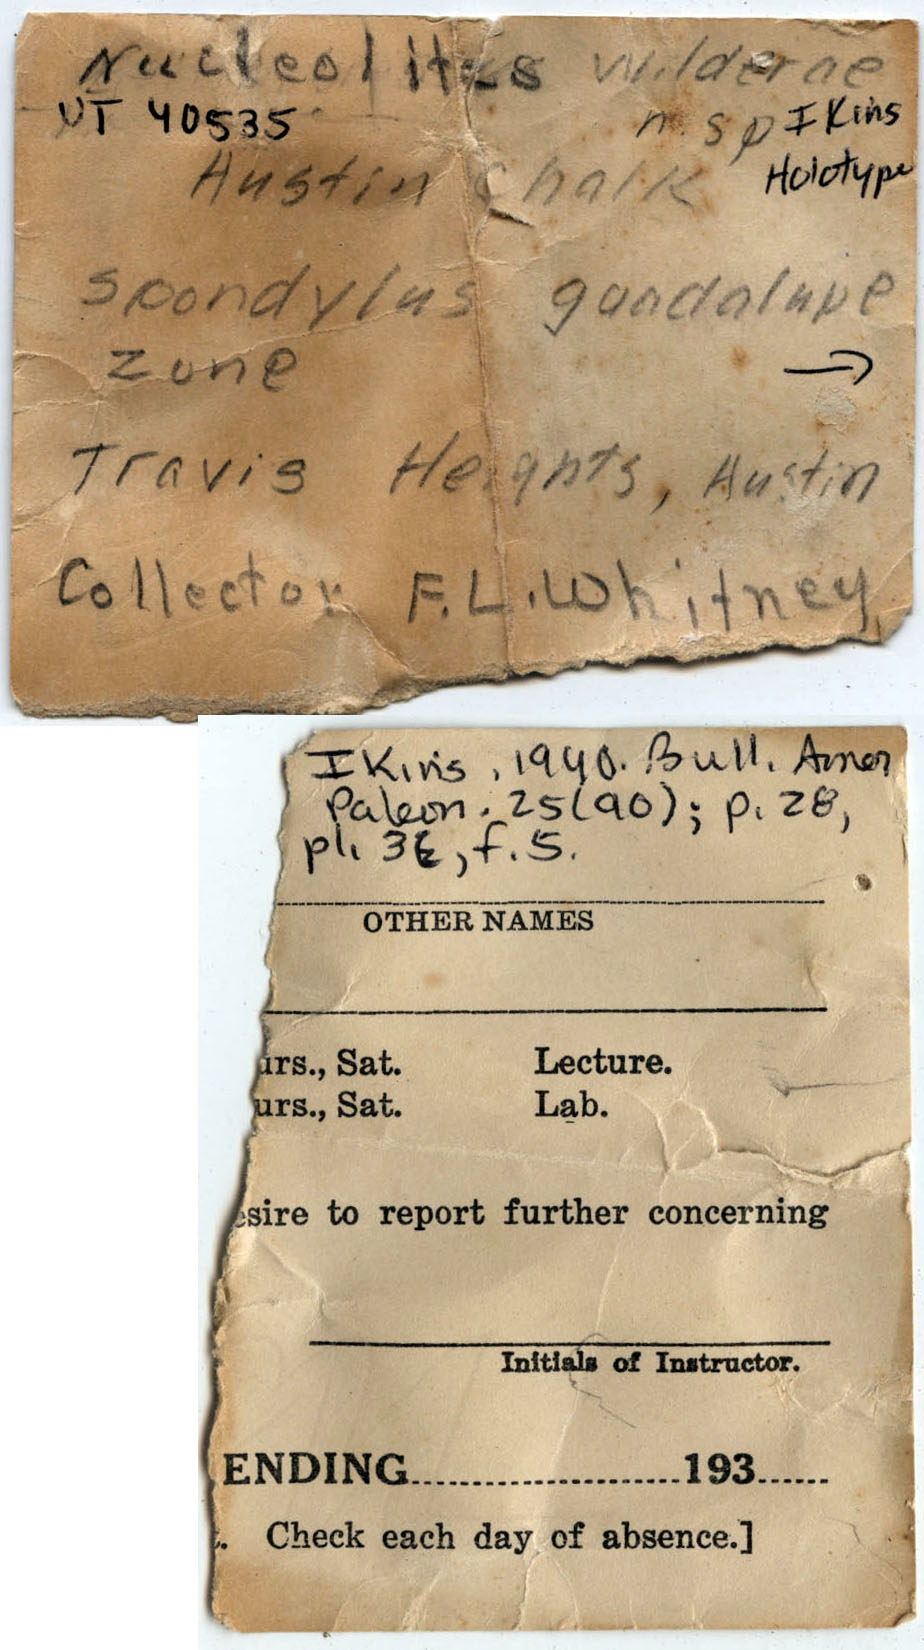 Nucleolites wilderae
UT 40535 n. sp Ikins
Austin Chalk Holotype
Spondylus guadalupe
zone →
Travis Heights, Austin
Collector F.L. Whitney
Ikins, 1940. Bull. Amer
Paleon. 25(90); p. 28,
pl. 3, f. 5.
OTHER NAMES
urs., Sat. Lecture.
urs., Sat. Lab.
esire to report further concerning
Initials of Instructor.
ENDING......................193......
t. Check each day of absence.]